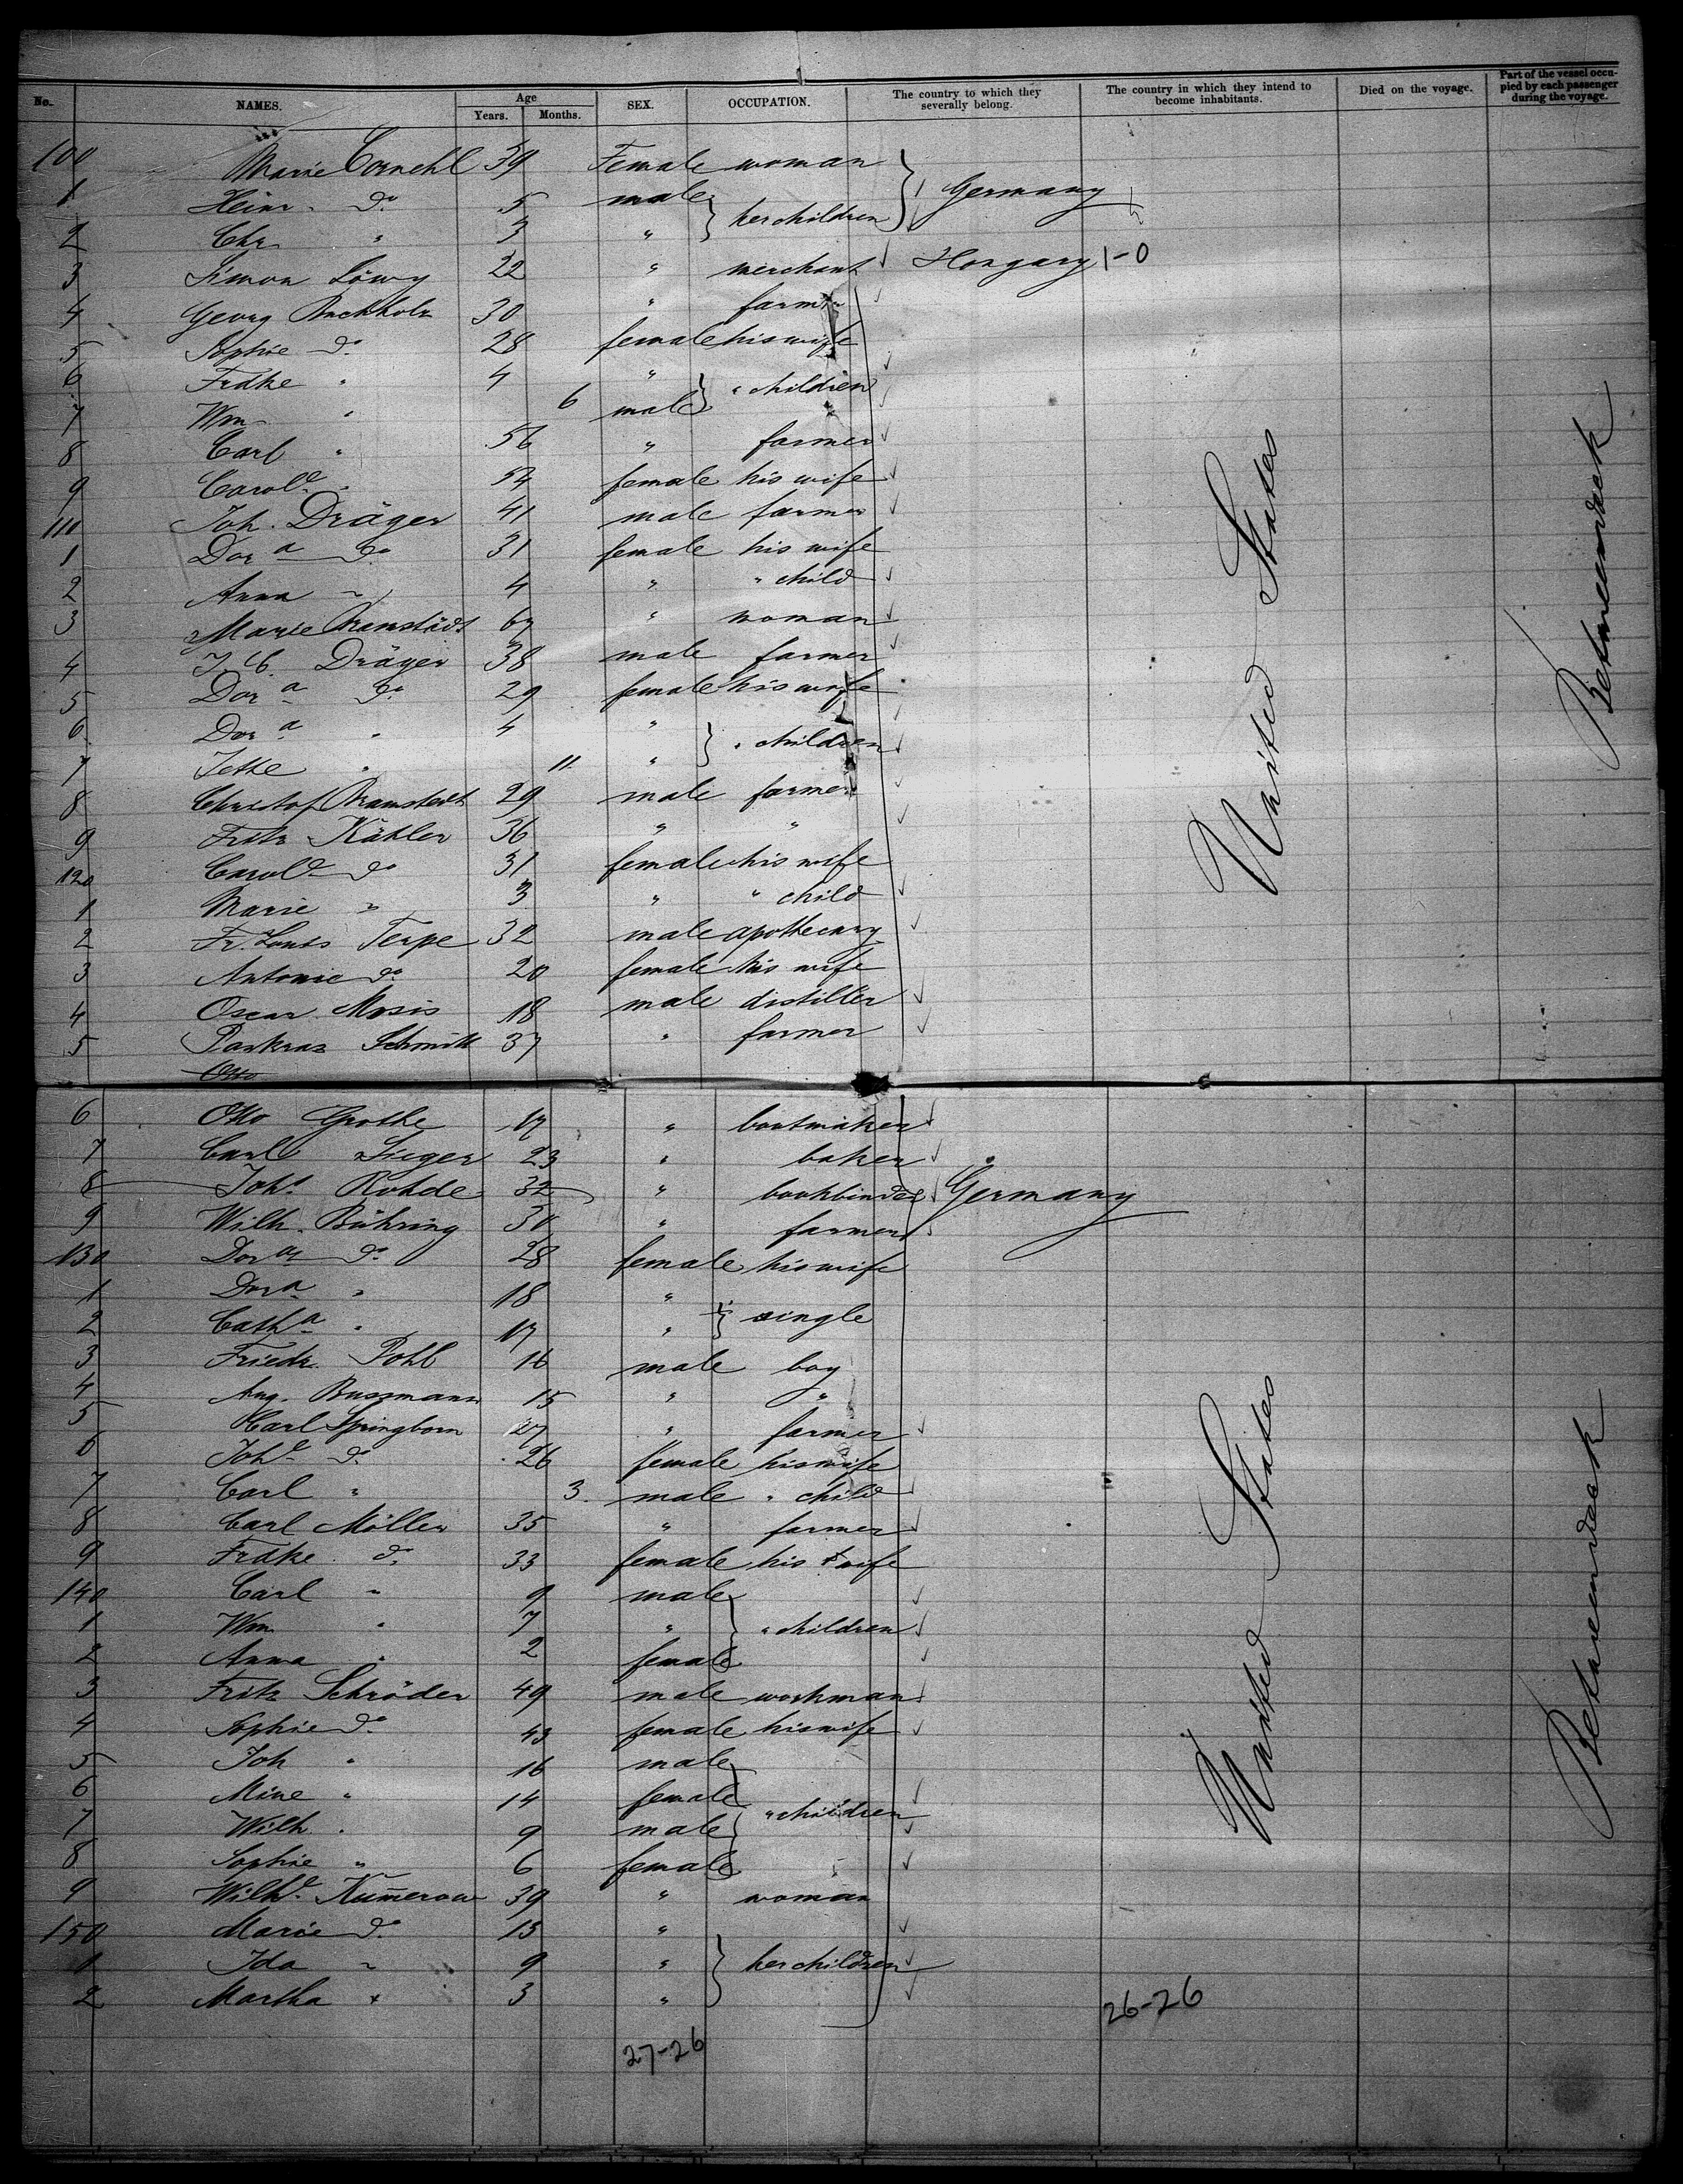 No. NAMES. Age Years. Months. SEX. OCCUPATION. The country to which they severally belong. The country in which they intend to become inhabitants. Died on the voyage. Part of the vessel occupied by each passenger during the voyage.
100 Marie Cornehl 39 Female woman
1 Heinr. do 5 male her children Germany
2 Chr. " 3 "
3 Simon Löwy 22 " merchant Hongary 1-0
4 Georg Buchholz 30 " farmer
5 Sophie do 28 female his wife
6 Frdke " 4 " " children
7 Wm " 6 male
8 Carl " 56 " farmer
9 Carole " 54 female his wife
110 Joh. Dräger 41 male farmer
1 Dora do 31 female his wife
2 Anna " 4 " " child
3 Marie Bramstädt 67 " woman
4 J. C. Dräger 38 male farmer
5 Dora do 29 female his wife
6 Dora " 4 " " children
7 Jette " 11 "
8 Christof Bramstedt 29 male farmer
9 Fritz Kähler 36 " "
120 Carole do 31 female his wife
1 Marie " 3 " " child
2 Fr. Louis Terpe 32 male apothecary
3 Antonie do 20 female his wife
4 Oscar Mosis 18 male distiller
5 Pankraz Schmitt 37 " farmer
Otto
United States
Betweendeck
6 Otto Grothe 17 " bootmaker
7 Carl Sieger 23 " baker
8 Johs Rohde 32 " bookbinder Germany
9 Wilh. Bühring 30 " farmer
130 Dora do 28 female his wife
1 Dora " 18 " single
2 Catha " 17 "
3 Friedr. Pohl 16 male boy
4 Aug. Bussmann 15 " "
5 Carl Springborn 27 " farmer
6 Johe do 26 female his wife
7 Carl " 3 male " child
8 Carl Möller 35 " farmer
9 Frdke do 33 female his wife
140 Carl " 9 male
1 Wm " 7 " " children
2 Anna " 2 female
3 Fritz Schröder 49 male workman
4 Sophie do 43 female his wife
5 Joh " 16 male
6 Mine " 14 female " children
7 Wilh. " 9 male
8 Sophie " 6 female
9 Wilhe Kum̄erow 39 " woman
150 Marie do 13 "
1 Ida " 9 " her children
2 Martha " 3 "
United States
Betweendeck
26-26
27-26